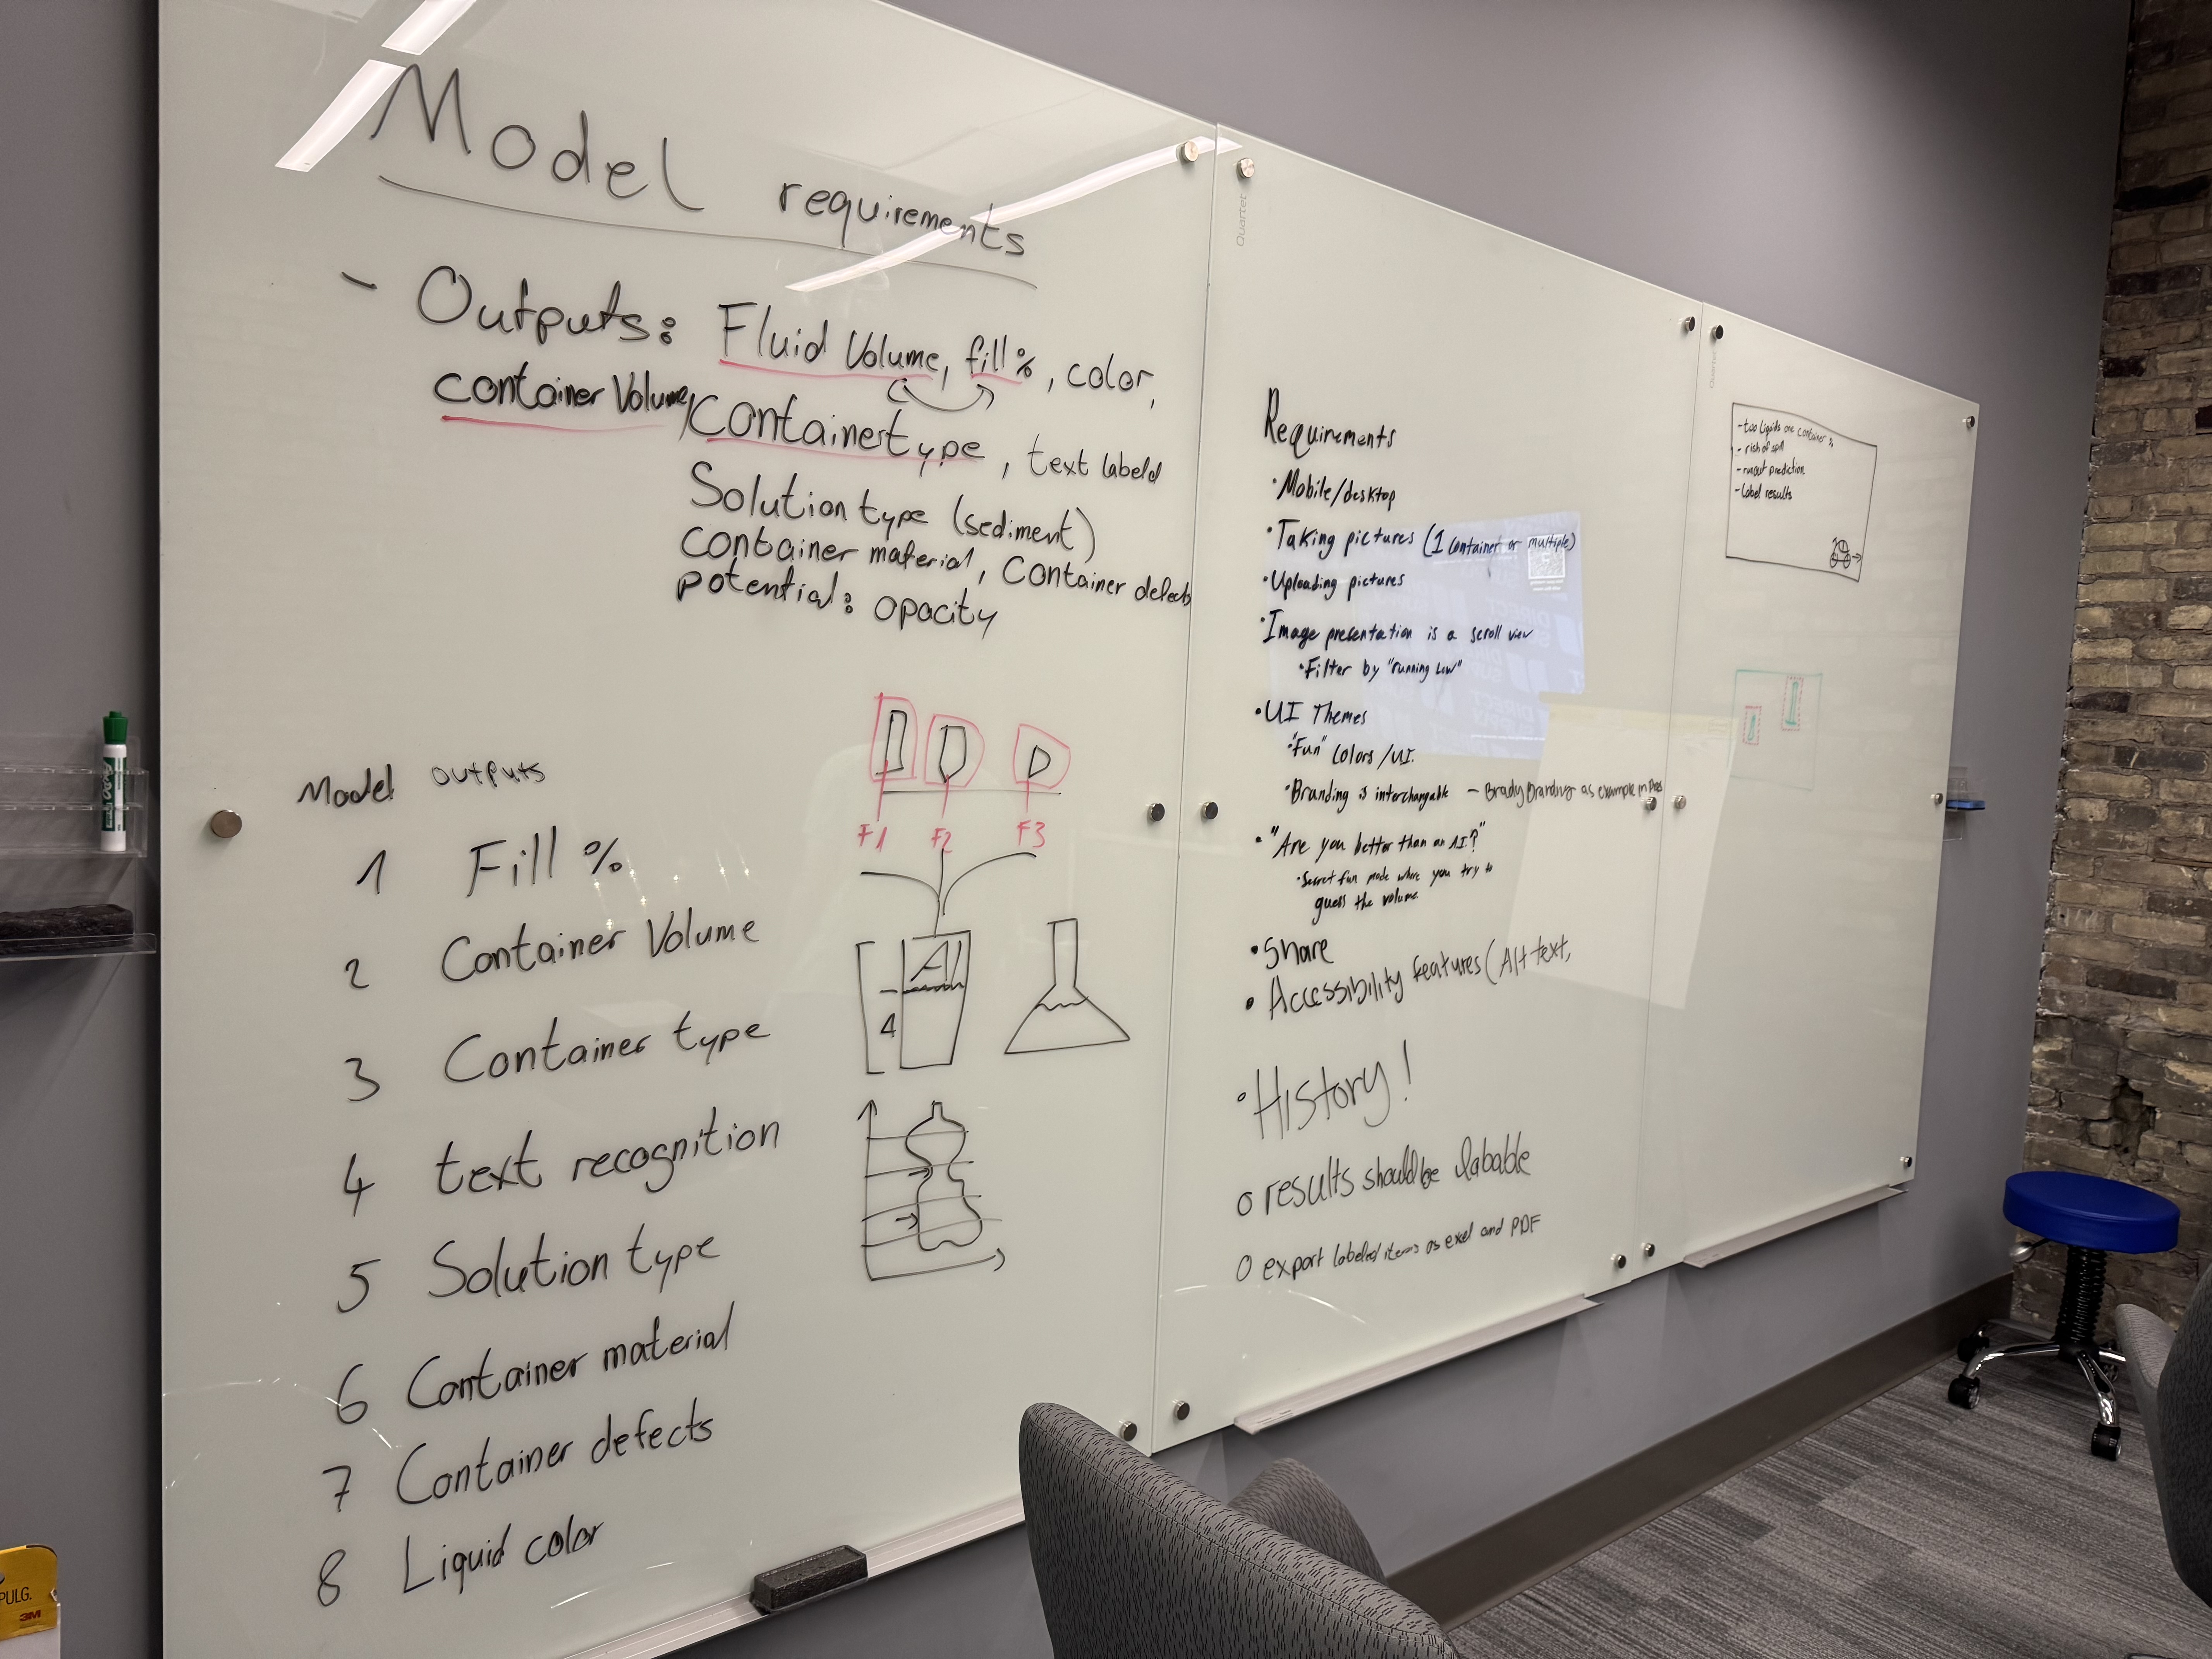 Model requirements
- Outputs: Fluid Volume, fill %, color,
container Volume, Container type, text labeld
Solution type (sediment)
container material, Container defects
potential: opacity
F1 F2 F3
A1
4
Model outputs
1 Fill %
2 Container Volume
3 Container type
4 text recognition
5 Solution type
6 Container material
7 Container defects
8 Liquid color
Quartet
Requirements
• Mobile/desktop
• Taking pictures (1 container or multiple)
• Uploading pictures
• Image presentation is a scroll view
• Filter by "running low"
• UI Themes
• "Fun" colors/UI.
• Branding is interchangable - Brady Branding as example in
• "Are you better than an AI?"
• Secret fun mode where you try to
guess the volume
• Share
• Accessibility features (Alt text,
• History!
o results should be labable
o export labeled items as exel and PDF
Quartet
- two liquids one container
- risk of spill
- runout prediction
- label results
PULG.
3M